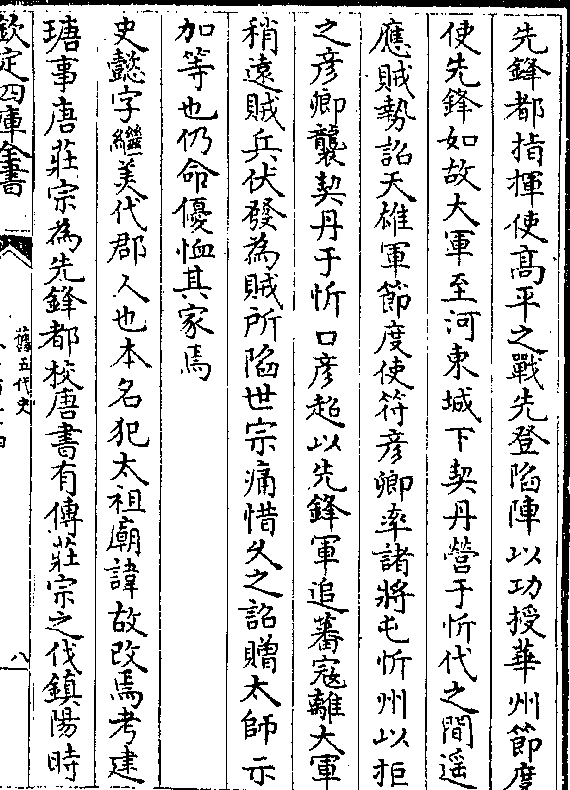 先鋒都指揮使髙平之戰先登陷陣以功授華州節度
使先鋒如故大軍至河東城下契丹營于忻代之間遥
應賊勢詔天雄軍節度使符彦卿率諸將屯忻州以拒
之彦卿襲契丹于忻口彦超以先鋒軍追蕃寇離大軍
稍逺賊兵伏發為賊所陷世宗痛惜久之詔贈太師示
加等也仍命優恤其家焉
史懿字繼美代郡人也本名犯太祖廟諱故改焉考建
瑭事唐莊宗為先鋒都校唐書有傳莊宗之伐鎮陽時
欽定四庫全書
舊五代史
八